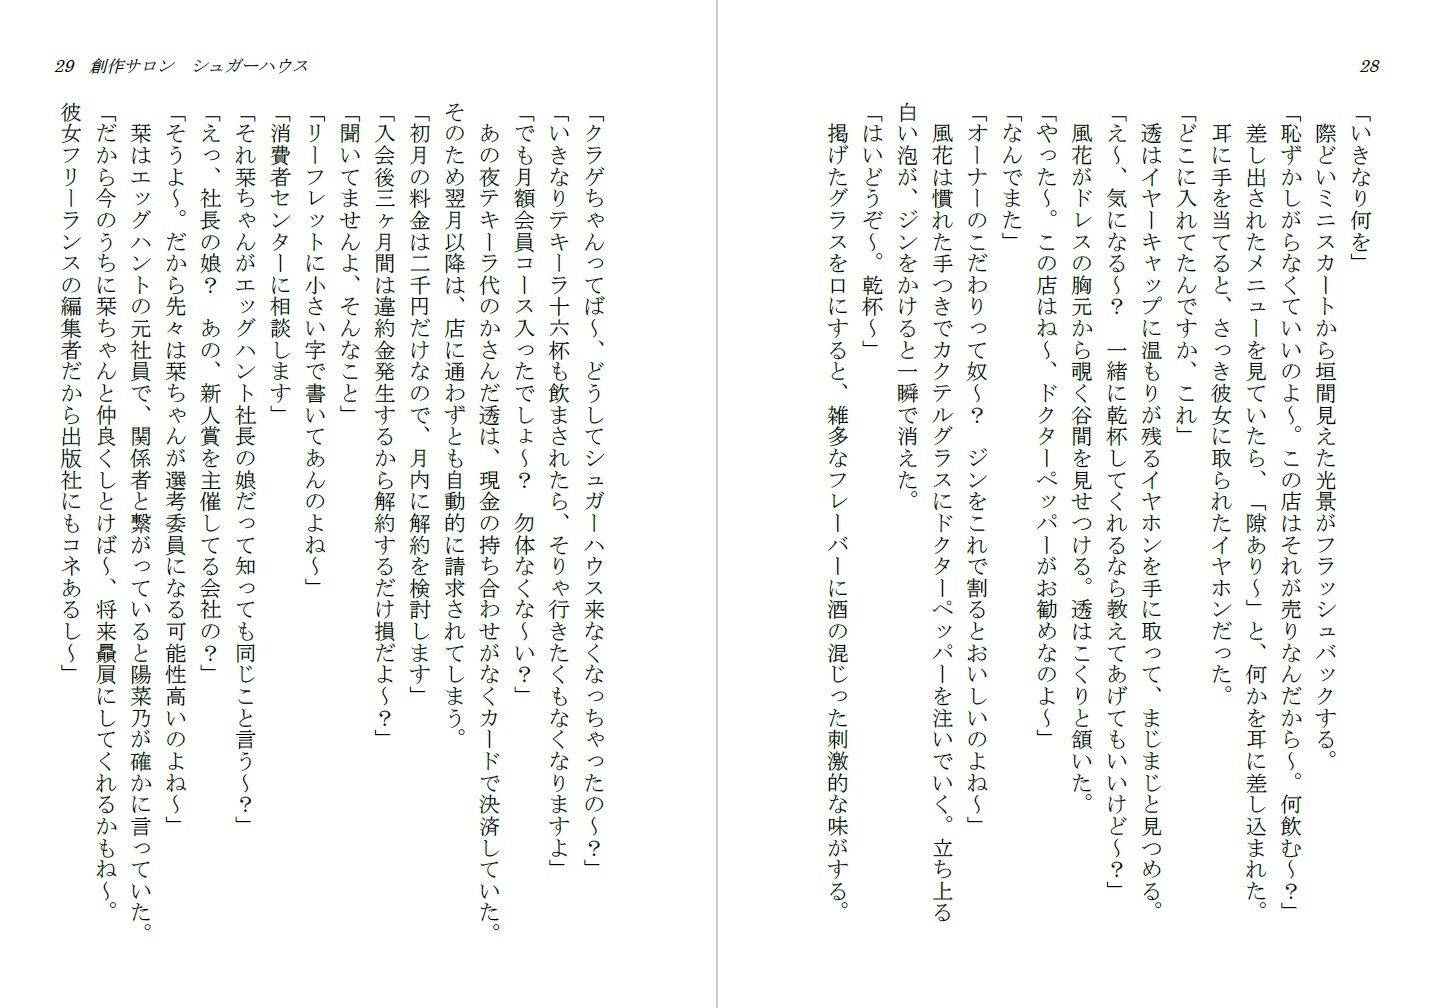 28
「いきなり何を」
際どいミニスカートから垣間見えた光景がフラッシュバックする。
「恥ずかしがらなくていいのよ～。この店はそれが売りなんだから～。何飲む～？」
差し出されたメニューを見ていたら、「隙あり～」と、何かを耳に差し込まれた。
耳に手を当てると、さっき彼女に取られたイヤホンだった。
「どこに入れてたんですか、これ」
透はイヤーキャップに温もりが残るイヤホンを手に取って、まじまじと見つめる。
「え～、気になる～？　一緒に乾杯してくれるなら教えてあげてもいいけど～？」
風花がドレスの胸元から覗く谷間を見せつける。透はこくりと頷いた。
「やった～。この店はね～、ドクターペッパーがお勧めなのよ～」
「なんでまた」
「オーナーのこだわりって奴～？　ジンをこれで割るとおいしいのよね～」
風花は慣れた手つきでカクテルグラスにドクターペッパーを注いでいく。立ち上る
白い泡が、ジンをかけると一瞬で消えた。
「はいどうぞ～。乾杯～」
掲げたグラスを口にすると、雑多なフレーバーに酒の混じった刺激的な味がする。
29　創作サロン　シュガーハウス
「クラゲちゃんってば～、どうしてシュガーハウス来なくなっちゃったの～？」
「いきなりテキーラ十六杯も飲まされたら、そりゃ行きたくもなくなりますよ」
「でも月額会員コース入ったでしょ～？　勿体なくな～い？」
あの夜テキーラ代のかさんだ透は、現金の持ち合わせがなくカードで決済していた。
そのため翌月以降は、店に通わずとも自動的に請求されてしまう。
「初月の料金は二千円だけなので、月内に解約を検討します」
「入会後三ヶ月間は違約金発生するから解約するだけ損だよ～？」
「聞いてませんよ、そんなこと」
「リーフレットに小さい字で書いてあんのよね～」
「消費者センターに相談します」
「それ栞ちゃんがエッグハント社長の娘だって知っても同じこと言う～？」
「えっ、社長の娘？　あの、新人賞を主催してる会社の？」
「そうよ～。だから先々は栞ちゃんが選考委員になる可能性高いのよね～」
栞はエッグハントの元社員で、関係者と繋がっていると陽菜乃が確かに言っていた。
「だから今のうちに栞ちゃんと仲良くしとけば～、将来贔屓にしてくれるかもね～。
彼女フリーランスの編集者だから出版社にもコネあるし～」